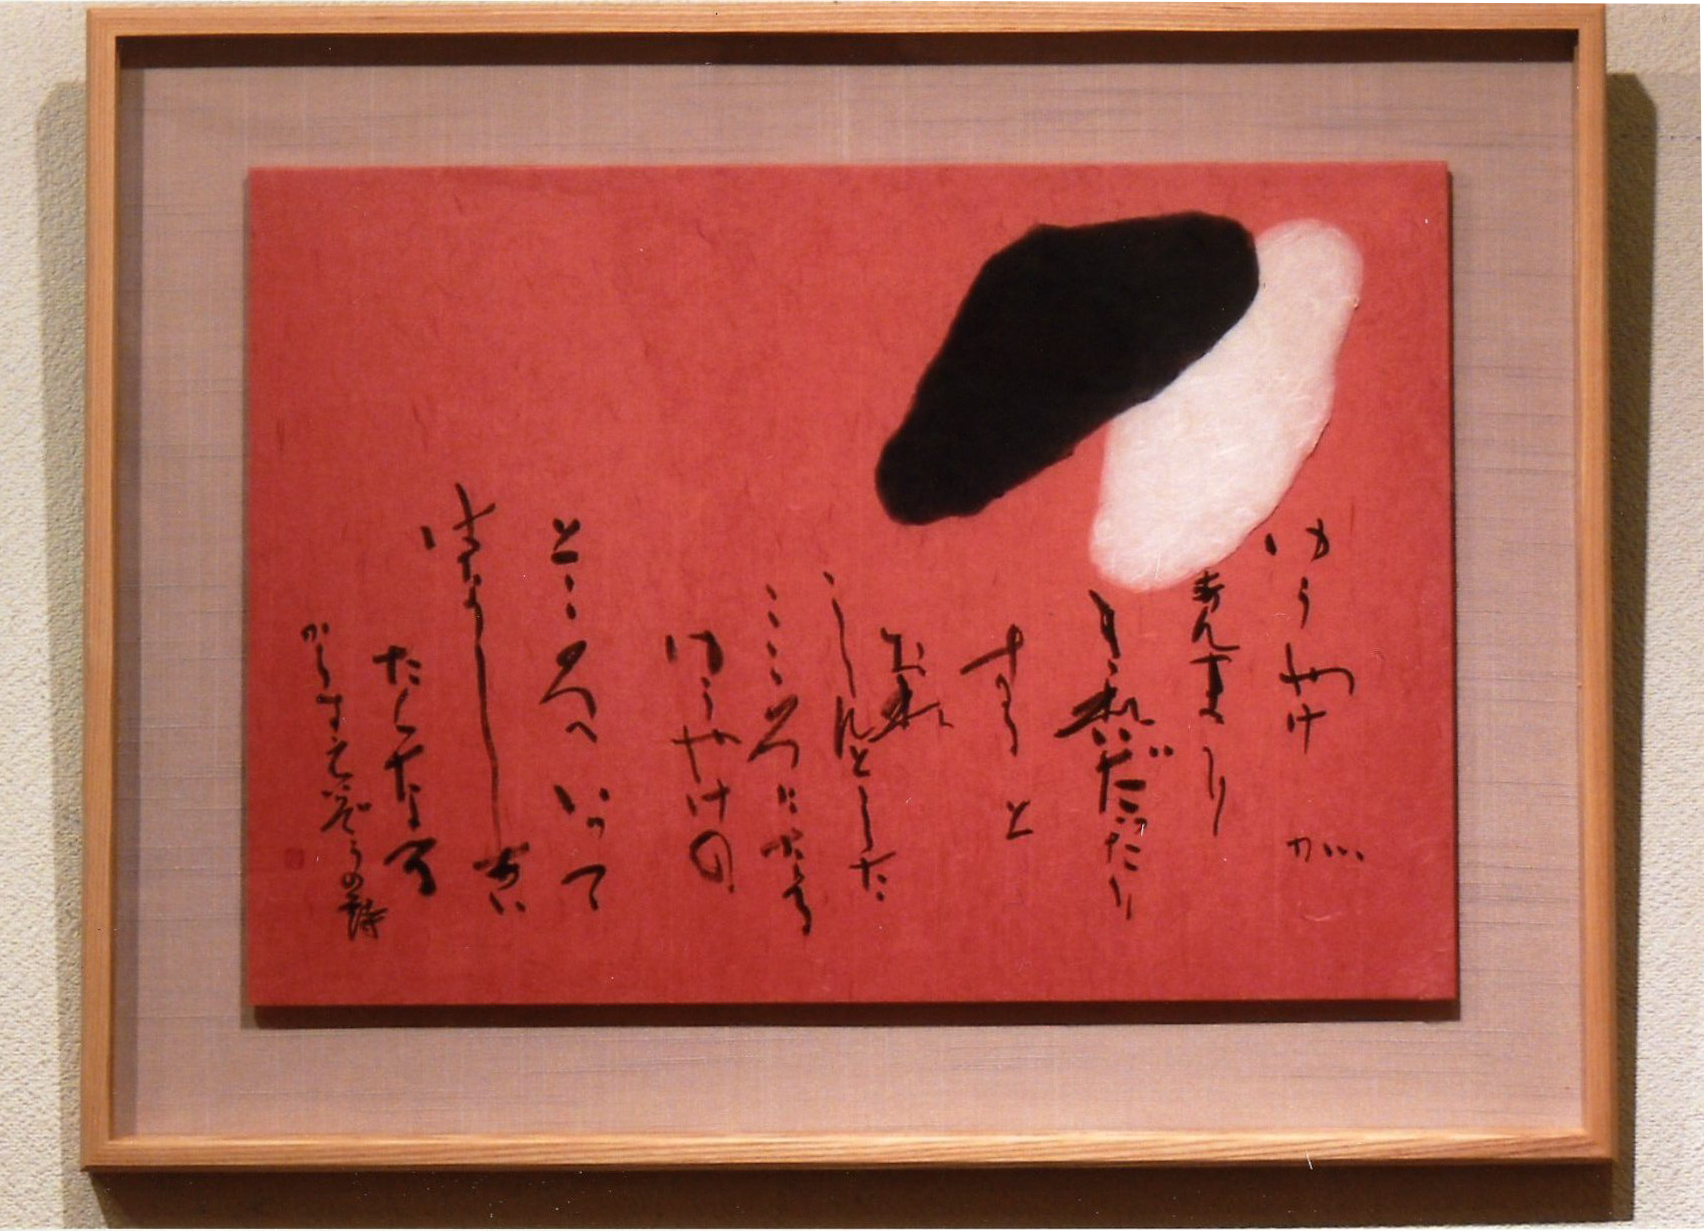 ゆうやけ が
あんまり
きれいだったり
すると
おれ
しーんとした
こころになる
ゆうやけの
ところへ いって
はなしあい
たくなる
からすえいぞうの詩